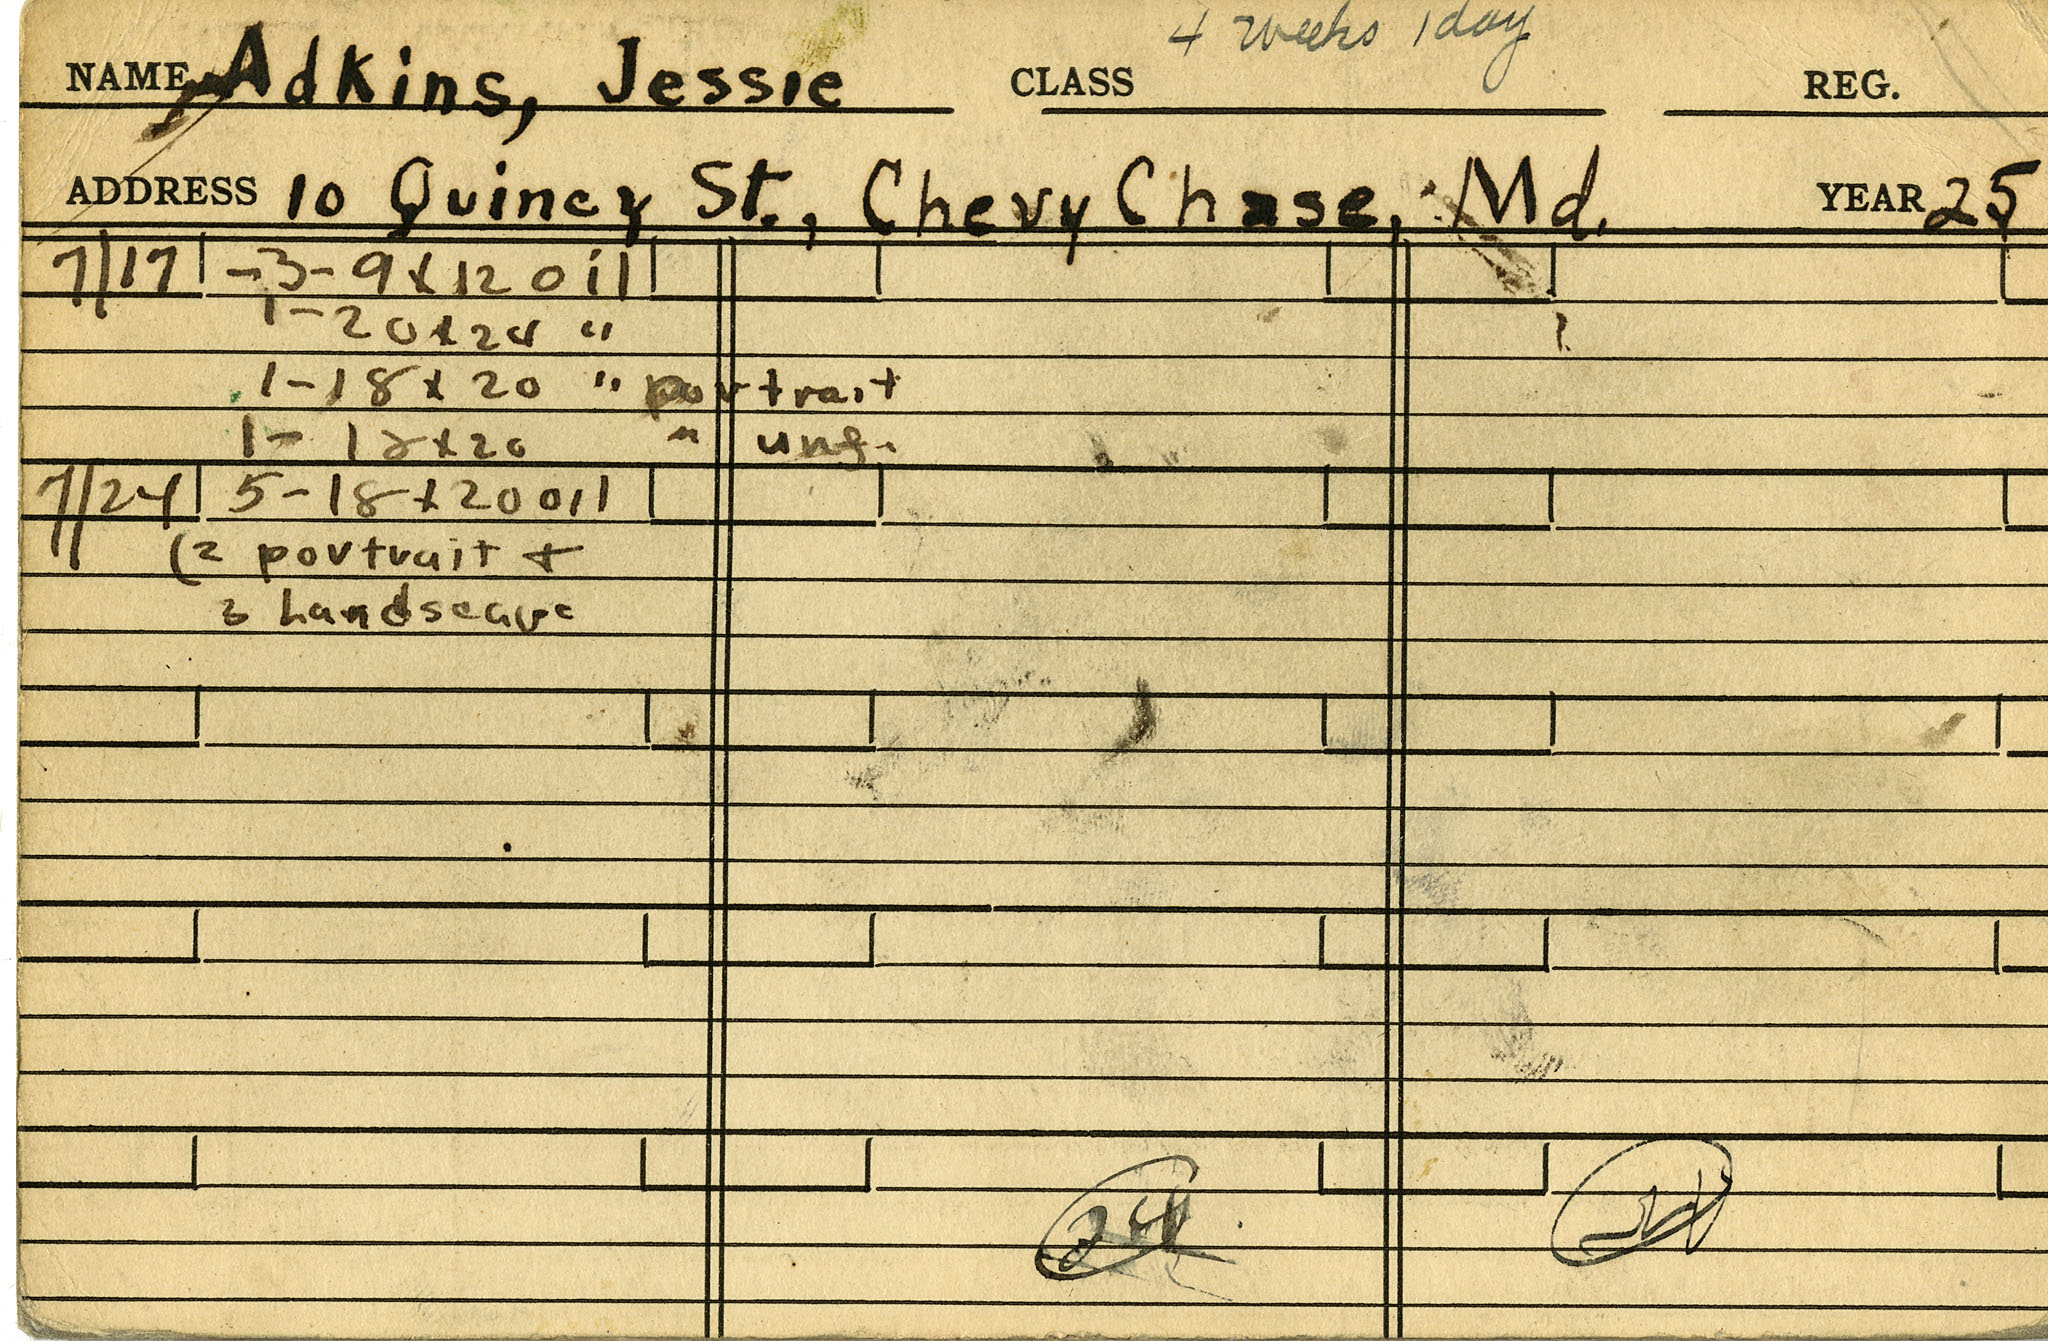 4 weeks 1 day
NAME Adkins, Jessie CLASS REG.
ADDRESS 10 Quincy St., Chevy Chase, Md. YEAR 25
7/17 -3-9x12 oil
1-20x24 "
1-18x20 " portrait
1-18x20 " unf.
7/24 5-18x20 oil
(2 portrait +
3 Landscape
24 24